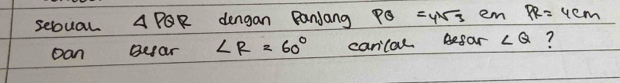 sebuah △ PQR dengan Panjang PQ = 4√3 cm PR = 4cm
Dan Besar ∠R = 60° carilah Besar ∠Q ?